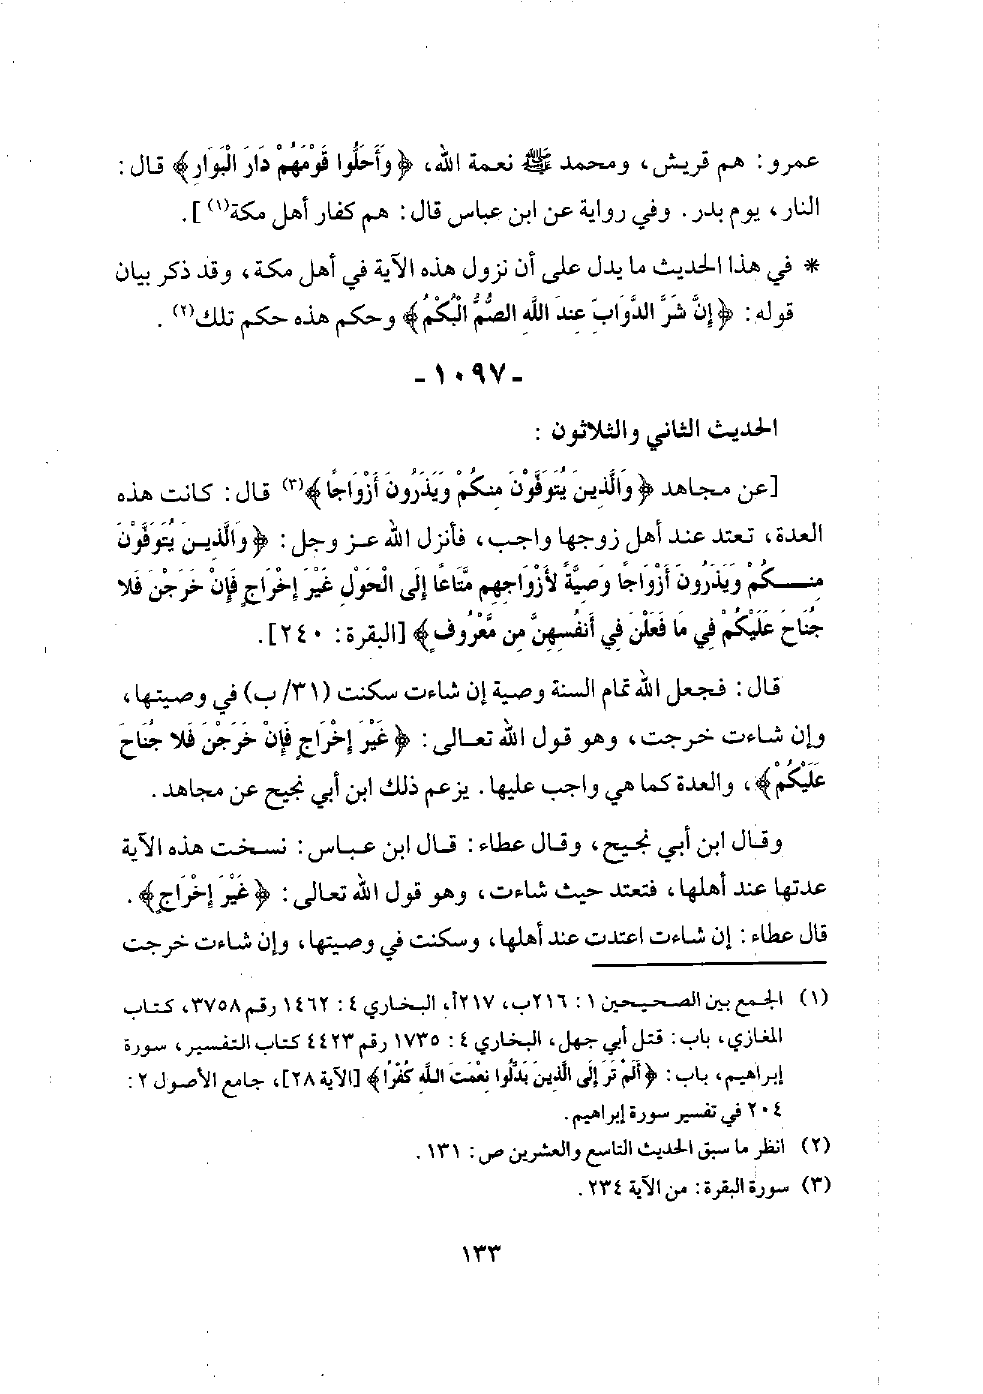 عمرو: هم قريش، ومحمد ﷺ نعمة الله، ﴿وَأَحَلُّوا قَوْمَهُمْ دَارَ الْبَوَارِ﴾ قال:
النار، يوم بدر. وفي رواية عن ابن عباس قال: هم كفار أهل مكة(١)].
* في هذا الحديث ما يدل على أن نزول هذه الآية في أهل مكة، وقد ذكر بيان
قوله: ﴿إِنَّ شَرَّ الدَّوَابِّ عِندَ اللَّهِ الصُّمُّ الْبُكْمُ﴾ وحكم هذه حكم تلك(٢).
-١٠٩٧-
الحديث الثاني والثلاثون:
[عن مجاهد ﴿وَالَّذِينَ يُتَوَفَّوْنَ مِنكُمْ وَيَذَرُونَ أَزْوَاجًا﴾(٣) قال: كانت هذه
العدة، تعتد عند أهل زوجها واجب، فأنزل الله عز وجل: ﴿وَالَّذِينَ يُتَوَفَّوْنَ
مِنكُمْ وَيَذَرُونَ أَزْوَاجًا وَصِيَّةً لأَزْوَاجِهِم مَّتَاعًا إِلَى الْحَوْلِ غَيْرَ إِخْرَاجٍ فَإِنْ خَرَجْنَ فَلا
جُنَاحَ عَلَيْكُمْ فِي مَا فَعَلْنَ فِي أَنفُسِهِنَّ مِن مَّعْرُوفٍ﴾ [البقرة: ٢٤٠].
قال: فجعل الله تمام السنة وصية إن شاءت سكنت (٣١/ ب) في وصيتها،
وإن شاءت خرجت، وهو قول الله تعالى: ﴿غَيْرَ إِخْرَاجٍ فَإِنْ خَرَجْنَ فَلا جُنَاحَ
عَلَيْكُمْ﴾، والعدة كما هي واجب عليها. يزعم ذلك ابن أبي نجيح عن مجاهد.
وقال ابن أبي نجيح، وقال عطاء: قال ابن عباس: نسخت هذه الآية
عدتها عند أهلها، فتعتد حيث شاءت، وهو قول الله تعالى: ﴿غَيْرَ إِخْرَاجٍ﴾.
قال عطاء: إن شاءت اعتدت عند أهلها، وسكنت في وصيتها، وإن شاءت خرجت
(١) الجمع بين الصحيحين ١: ٢١٦ب، ٢١٧أ، البخاري ٤: ١٤٦٢ رقم ٣٧٥٨، كتاب
المغازي، باب: قتل أبي جهل، البخاري ٤: ١٧٣٥ رقم ٤٤٢٣ كتاب التفسير، سورة
إبراهيم، باب: ﴿أَلَمْ تَرَ إِلَى الَّذِينَ بَدَّلُوا نِعْمَتَ اللَّهِ كُفْرًا﴾ [الآية ٢٨]، جامع الأصول ٢:
٢٠٤ في تفسير سورة إبراهيم.
(٢) انظر ما سبق الحديث التاسع والعشرين ص: ١٣١.
(٣) سورة البقرة: من الآية ٢٣٤.
١٣٣